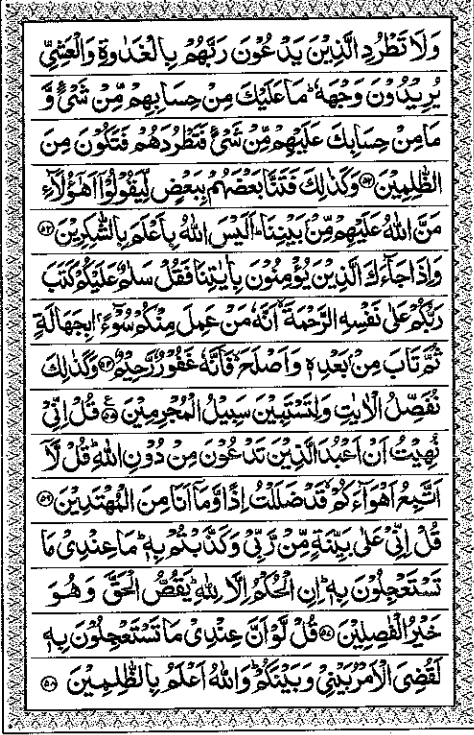 وَلَا تَطْرُدِ الَّذِيْنَ يَدْعُوْنَ رَبَّهُمْ بِالْغَدٰوةِ وَالْعَشِيِّ
يُرِيْدُوْنَ وَجْهَهٗ ؕ مَا عَلَيْكَ مِنْ حِسَابِهِمْ مِّنْ شَيْءٍ وَّ
مَا مِنْ حِسَابِكَ عَلَيْهِمْ مِّنْ شَيْءٍ فَتَطْرُدَهُمْ فَتَكُوْنَ مِنَ
الظّٰلِمِيْنَ ﴿۵۲﴾ وَكَذٰلِكَ فَتَنَّا بَعْضَهُمْ بِبَعْضٍ لِّيَقُوْلُوْۤا اَهٰۤؤُلَآءِ
مَنَّ اللّٰهُ عَلَيْهِمْ مِّنْۢ بَيْنِنَا ؕ اَلَيْسَ اللّٰهُ بِاَعْلَمَ بِالشّٰكِرِيْنَ ﴿۵۳﴾
وَاِذَا جَآءَكَ الَّذِيْنَ يُؤْمِنُوْنَ بِاٰيٰتِنَا فَقُلْ سَلٰمٌ عَلَيْكُمْ كَتَبَ
رَبُّكُمْ عَلٰى نَفْسِهِ الرَّحْمَةَ ۙ اَنَّهٗ مَنْ عَمِلَ مِنْكُمْ سُوْٓءًۢا بِجَهَالَةٍ
ثُمَّ تَابَ مِنْۢ بَعْدِهٖ وَاَصْلَحَ فَاَنَّهٗ غَفُوْرٌ رَّحِيْمٌ ﴿۵۴﴾ وَكَذٰلِكَ
نُفَصِّلُ الْاٰيٰتِ وَلِتَسْتَبِيْنَ سَبِيْلُ الْمُجْرِمِيْنَ ﴿۵۵﴾ قُلْ اِنِّيْ
نُهِيْتُ اَنْ اَعْبُدَ الَّذِيْنَ تَدْعُوْنَ مِنْ دُوْنِ اللّٰهِ ؕ قُلْ لَّاۤ
اَتَّبِعُ اَهْوَآءَكُمْ ۙ قَدْ ضَلَلْتُ اِذًا وَّمَاۤ اَنَا مِنَ الْمُهْتَدِيْنَ ﴿۵۶﴾
قُلْ اِنِّيْ عَلٰى بَيِّنَةٍ مِّنْ رَّبِّيْ وَكَذَّبْتُمْ بِهٖ ؕ مَا عِنْدِيْ مَا
تَسْتَعْجِلُوْنَ بِهٖ ؕ اِنِ الْحُكْمُ اِلَّا لِلّٰهِ ؕ يَقُصُّ الْحَقَّ وَهُوَ
خَيْرُ الْفٰصِلِيْنَ ﴿۵۷﴾ قُلْ لَّوْ اَنَّ عِنْدِيْ مَا تَسْتَعْجِلُوْنَ بِهٖ
لَقُضِيَ الْاَمْرُ بَيْنِيْ وَبَيْنَكُمْ ؕ وَاللّٰهُ اَعْلَمُ بِالظّٰلِمِيْنَ ﴿۵۸﴾